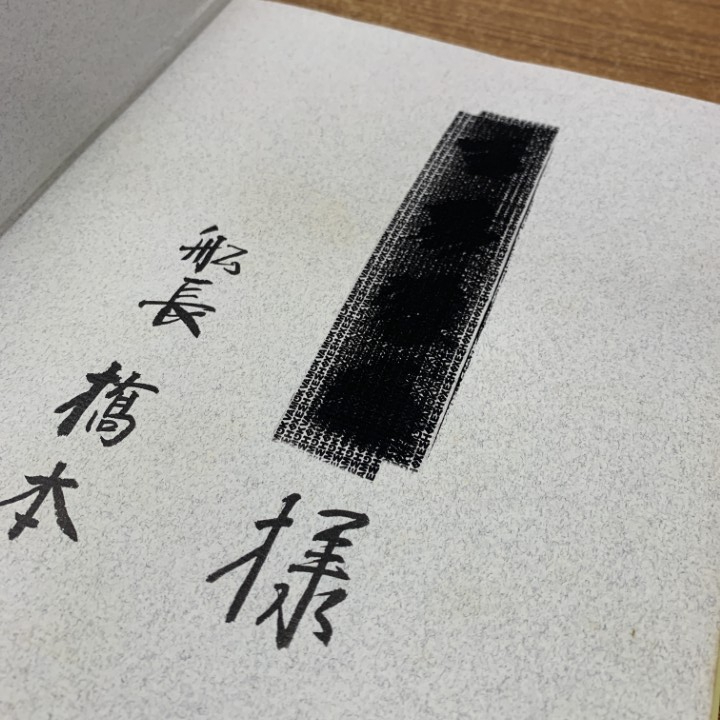 様
船長 橋本